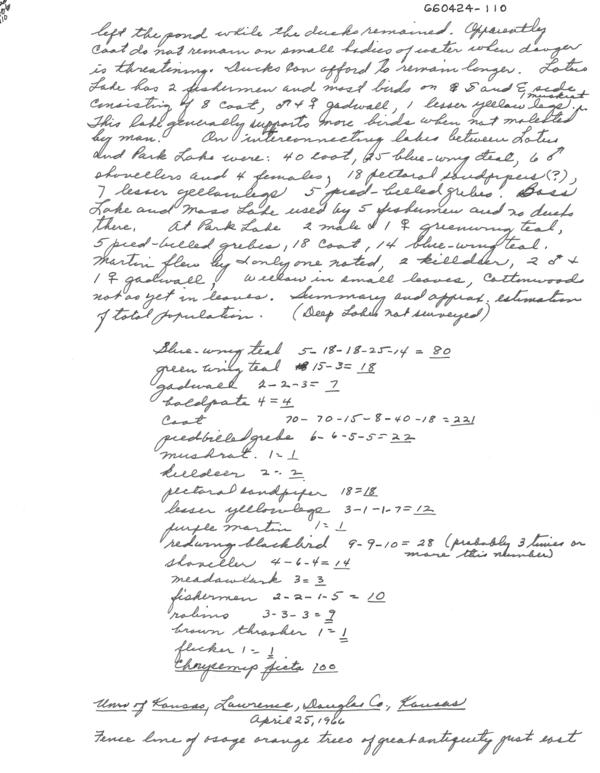 G60424-110
left the pond while the ducks remained. Apparently
coot do not remain on small bodies of water when danger
is threatening. Ducks can afford to remain longer. Lotus
Lake has 2 fishermen and most birds on S and E side
consisting of 8 coot, ♂ + ♀ gadwall, 1 lesser yellow legs, 1 muskrat.
This lake generally supports more birds when not molested
by man. On interconnecting lakes between Lotus
and Park Lake were: 40 coot, 25 blue-wing teal, 6 ♂
shovellers and 4 females, 18 pectoral sandpipers (?),
7 lesser yellowlegs 5 pied-billed grebes. Bass
Lake and Moss Lake used by 5 fishermen and no ducks
there. At Park Lake 2 male & 1 ♀ greenwing teal,
5 pied-billed grebes, 18 coot, 14 blue-wing teal.
Martin flew by & only one noted, 2 killdeer, 2 ♂ +
1 ♀ gadwall, willow in small leaves, Cottonwoods
not as yet in leaves. Summary and approx. estimation
of total population. (Deep Lake not surveyed)
Blue-wing teal 5-18-18-25-14 = 80
green wing teal 15-3 = 18
gadwall 2-2-3 = 7
baldpate 4 = 4
Coot 70-70-15-8-40-18 = 221
piedbilled grebe 6-6-5-5 = 22
muskrat. 1 - 1
killdeer 2 - 2
pectoral sandpiper 18 = 18
lesser yellowlegs 3-1-1-7 = 12
purple martin 1 = 1
redwing blackbird 9-9-10 = 28 (probably 3 times or
more this number)
shoveller 4-6-4 = 14
meadowlark 3 = 3
fishermen 2-2-1-5 = 10
robins 3-3-3 = 9
brown thrasher 1 = 1
flicker 1 = 1
Chrysemys picta 100
Univ of Kansas, Lawrence, Douglas Co., Kansas
April 25, 1966
Fence line of osage orange trees of great antiquity just east